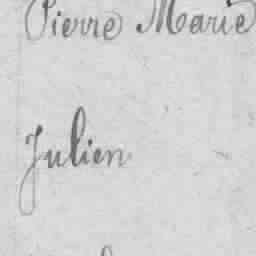 Pierre Marie
Julien